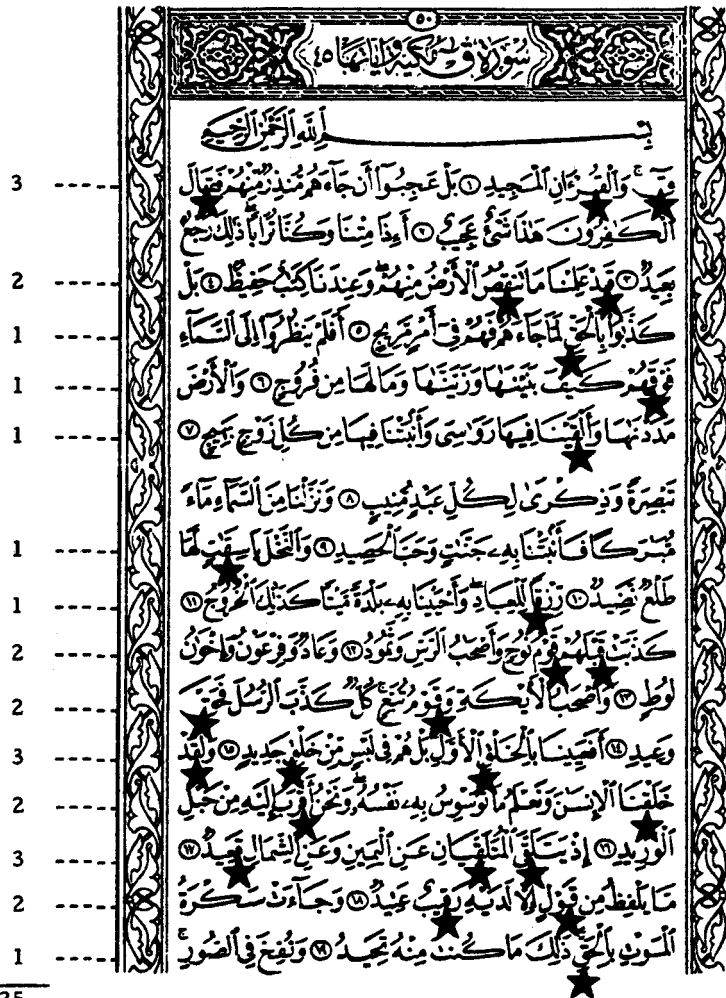 ٥٠
سُورَةُ قٓ مَكِّيَّة وَآيَاتُهَا ٤٥
بِسْمِ ٱللَّهِ ٱلرَّحْمَٰنِ ٱلرَّحِيمِ
3 ---- قٓۚ وَٱلْقُرْءَانِ ٱلْمَجِيدِ ١ بَلْ عَجِبُوٓا۟ أَن جَآءَهُم مُّنذِرٌ مِّنْهُمْ فَقَالَ
ٱلْكَٰفِرُونَ هَٰذَا شَىْءٌ عَجِيبٌ ٢ أَءِذَا مِتْنَا وَكُنَّا تُرَابًا ۖ ذَٰلِكَ رَجْعٌۢ
2 ---- بَعِيدٌ ٣ قَدْ عَلِمْنَا مَا تَنقُصُ ٱلْأَرْضُ مِنْهُمْ ۖ وَعِندَنَا كِتَٰبٌ حَفِيظٌۢ ٤ بَلْ
1 ---- كَذَّبُوا۟ بِٱلْحَقِّ لَمَّا جَآءَهُمْ فَهُمْ فِىٓ أَمْرٍ مَّرِيجٍ ٥ أَفَلَمْ يَنظُرُوٓا۟ إِلَى ٱلسَّمَآءِ
1 ---- فَوْقَهُمْ كَيْفَ بَنَيْنَٰهَا وَزَيَّنَّٰهَا وَمَا لَهَا مِن فُرُوجٍ ٦ وَٱلْأَرْضَ
1 ---- مَدَدْنَٰهَا وَأَلْقَيْنَا فِيهَا رَوَٰسِىَ وَأَنۢبَتْنَا فِيهَا مِن كُلِّ زَوْجٍۭ بَهِيجٍ ٧
تَبْصِرَةً وَذِكْرَىٰ لِكُلِّ عَبْدٍ مُّنِيبٍ ٨ وَنَزَّلْنَا مِنَ ٱلسَّمَآءِ مَآءً
1 ---- مُّبَٰرَكًا فَأَنۢبَتْنَا بِهِۦ جَنَّٰتٍ وَحَبَّ ٱلْحَصِيدِ ٩ وَٱلنَّخْلَ بَاسِقَٰتٍ لَّهَا
1 ---- طَلْعٌ نَّضِيدٌ ١٠ رِّزْقًا لِّلْعِبَادِ ۖ وَأَحْيَيْنَا بِهِۦ بَلْدَةً مَّيْتًا ۚ كَذَٰلِكَ ٱلْخُرُوجُ ١١
2 ---- كَذَّبَتْ قَبْلَهُمْ قَوْمُ نُوحٍ وَأَصْحَٰبُ ٱلرَّسِّ وَثَمُودُ ١٢ وَعَادٌ وَفِرْعَوْنُ وَإِخْوَٰنُ
2 ---- لُوطٍ ١٣ وَأَصْحَٰبُ ٱلْأَيْكَةِ وَقَوْمُ تُبَّعٍ ۚ كُلٌّ كَذَّبَ ٱلرُّسُلَ فَحَقَّ
3 ---- وَعِيدِ ١٤ أَفَعَيِينَا بِٱلْخَلْقِ ٱلْأَوَّلِ ۚ بَلْ هُمْ فِى لَبْسٍ مِّنْ خَلْقٍ جَدِيدٍ ١٥ وَلَقَدْ
2 ---- خَلَقْنَا ٱلْإِنسَٰنَ وَنَعْلَمُ مَا تُوَسْوِسُ بِهِۦ نَفْسُهُۥ ۖ وَنَحْنُ أَقْرَبُ إِلَيْهِ مِنْ حَبْلِ
3 ---- ٱلْوَرِيدِ ١٦ إِذْ يَتَلَقَّى ٱلْمُتَلَقِّيَانِ عَنِ ٱلْيَمِينِ وَعَنِ ٱلشِّمَالِ قَعِيدٌ ١٧
2 ---- مَّا يَلْفِظُ مِن قَوْلٍ إِلَّا لَدَيْهِ رَقِيبٌ عَتِيدٌ ١٨ وَجَآءَتْ سَكْرَةُ
1 ---- ٱلْمَوْتِ بِٱلْحَقِّ ۖ ذَٰلِكَ مَا كُنتَ مِنْهُ تَحِيدُ ١٩ وَنُفِخَ فِى ٱلصُّورِ ۚ
25